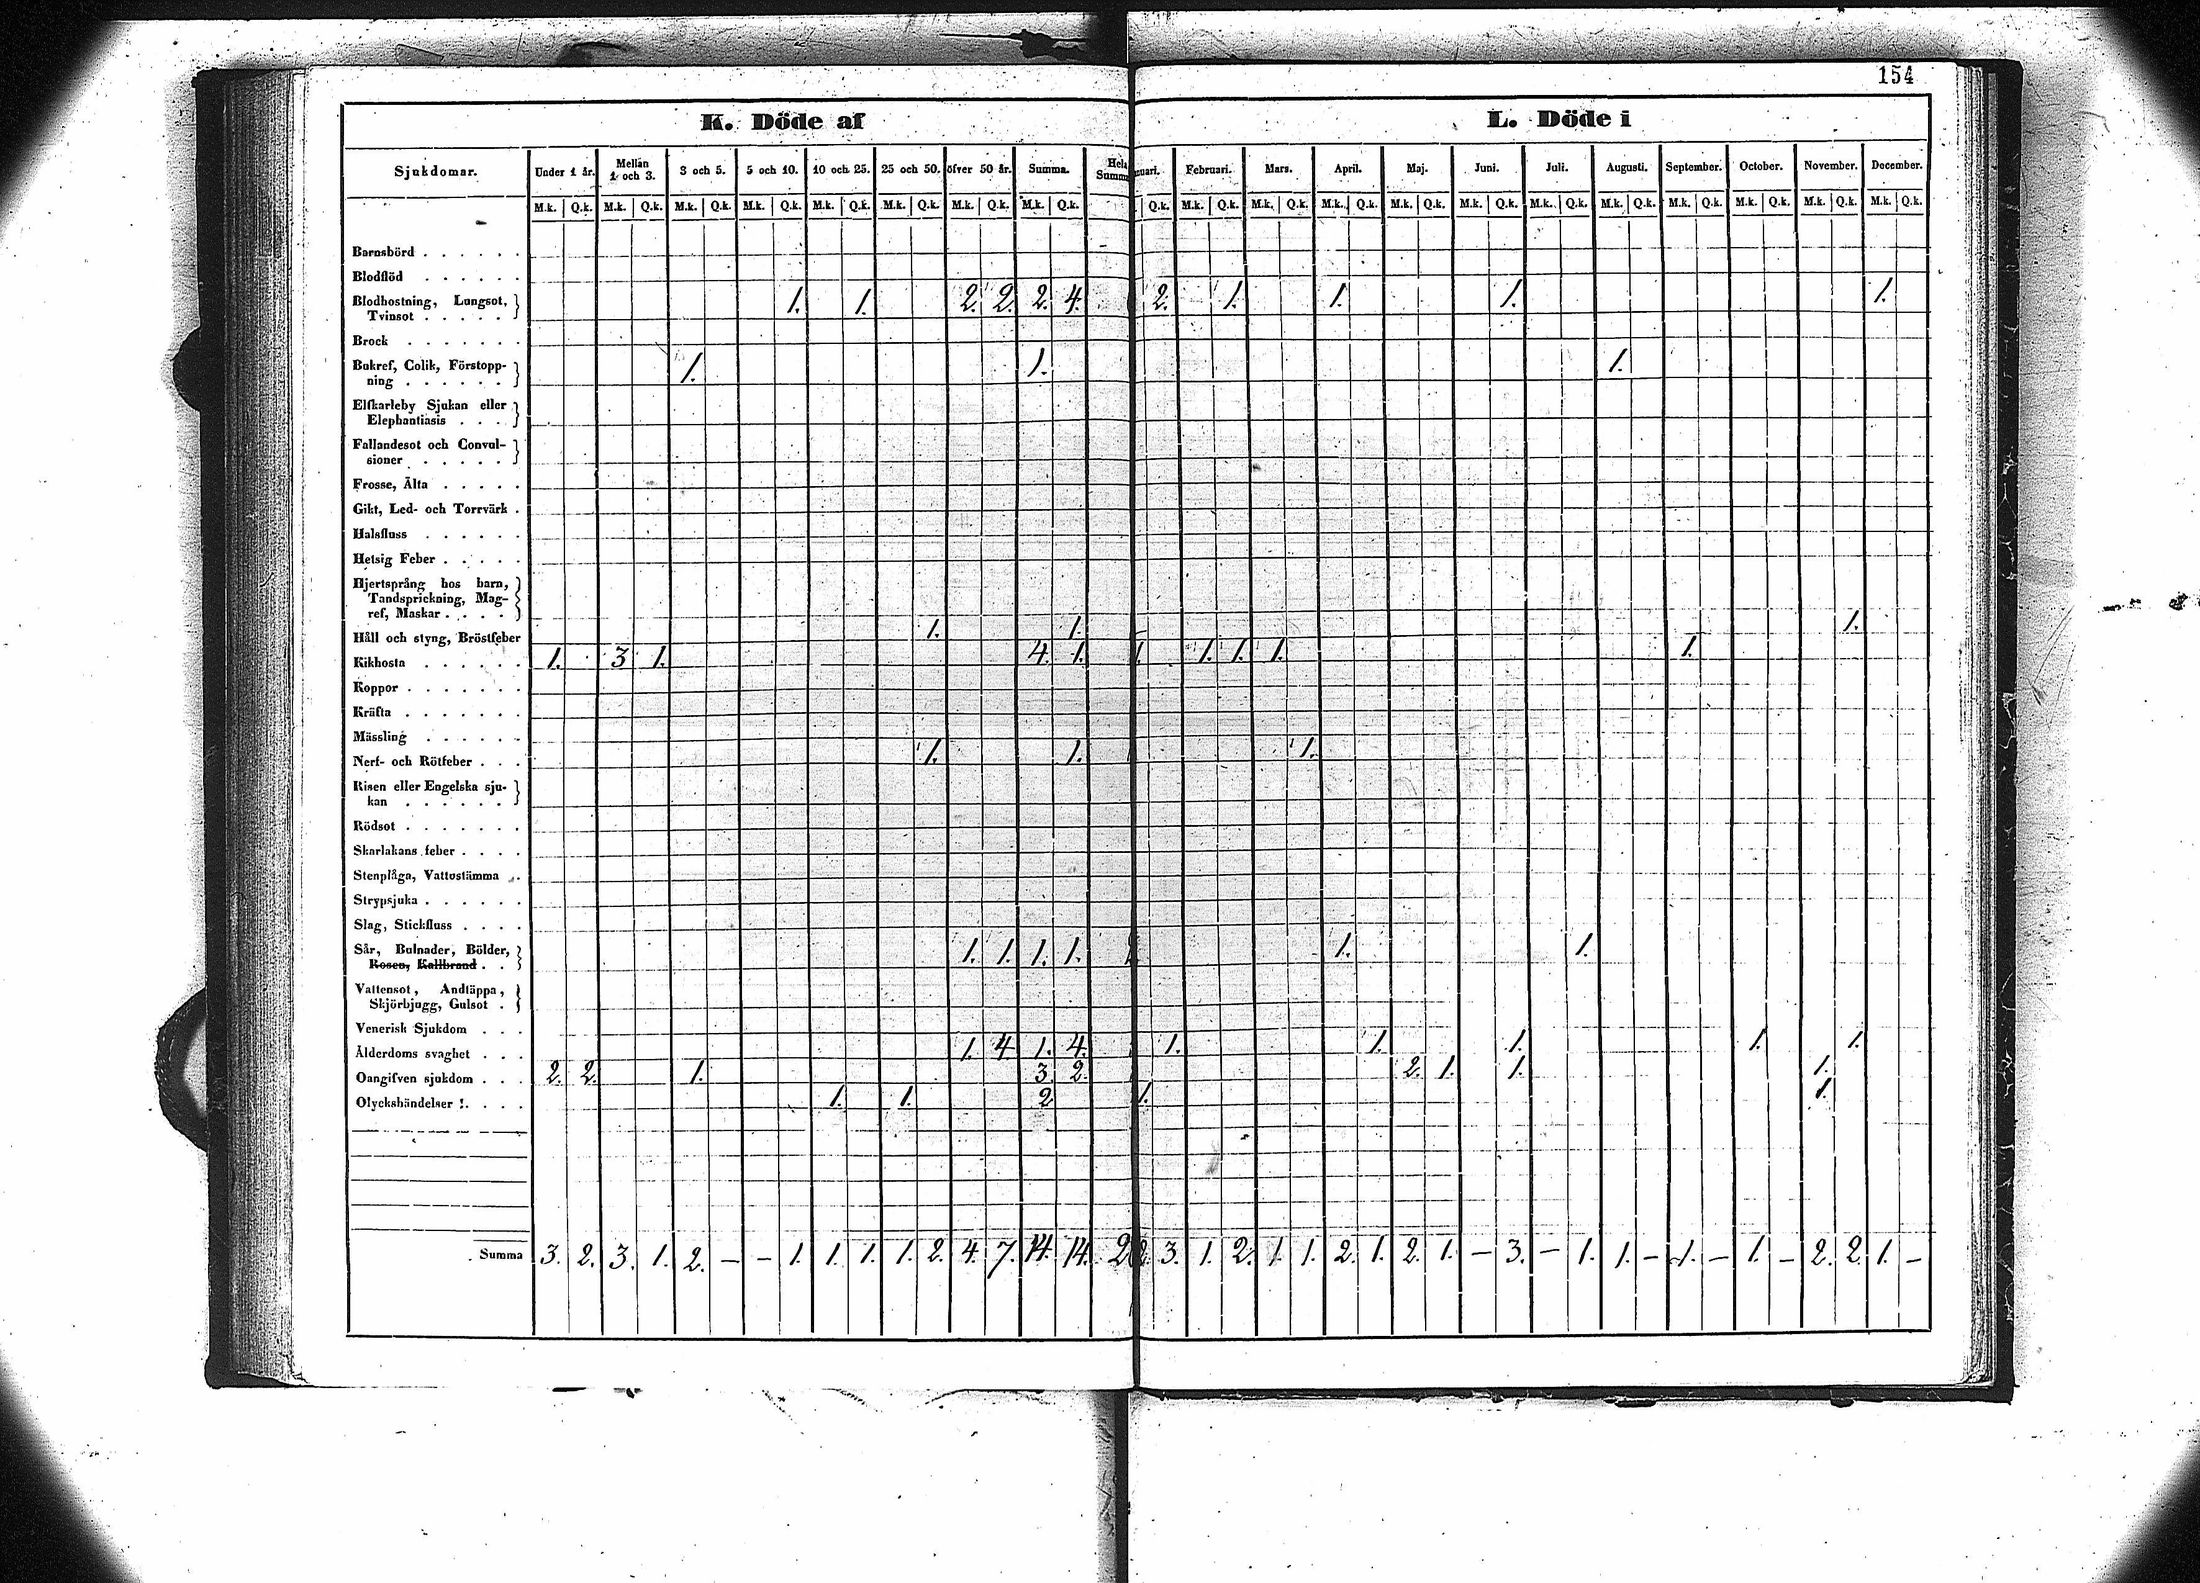 154
K. Döde af L. Döde i
Sjukdomar. Under 1 år. Mellan 1 och 3. 3 och 5. 5 och 10. 10 och 25. 25 och 50. öfver 50 år. Summa. Hela Summa nuari. Februari. Mars. April. Maj. Juni. Juli. Augusti. September. October. November. December.
M.k. Q.k. M.k. Q.k. M.k. Q.k. M.k. Q.k. M.k. Q.k. M.k. Q.k. M.k. Q.k. M.k. Q.k. Q.k. M.k. Q.k. M.k. Q.k. M.k. Q.k. M.k. Q.k. M.k. Q.k. M.k. Q.k. M.k. Q.k. M.k. Q.k. M.k. Q.k. M.k. Q.k. M.k. Q.k.
Barnsbörd . . . . . .
Blodflöd . . . . . .
Blodhostning, Lungsot,
Tvinsot . . . . . 1. 1. 2. 2. 2. 4. 2. 1. 1. 1. 1.
Brock . . . . . . .
Bukref, Colik, Förstopp-
ning . . . . . . 1. 1. 1.
Elfkarleby Sjukan eller
Elephantiasis . . .
Fallandesot och Convul-
sioner . . . . .
Frosse, Älta . . . . .
Gikt, Led- och Torrvärk .
Halsfluss . . . . . .
Hetsig Feber . . . . .
Hjertsprång hos barn,
Tandsprickning, Mag-
ref, Maskar . . . .
Håll och styng, Bröstfeber 1. 1. 1.
Kikhosta . . . . . . 1. 3 1. 4. 1. 1. 1. 1. 1. 1.
Koppor . . . . . . .
Kräfta . . . . . . .
Mässling . . . . . .
Nerf- och Rötfeber . . . 1. 1. 1.
Risen eller Engelska sju-
kan . . . . . .
Rödsot . . . . . . .
Skarlakans feber . . . .
Stenplåga, Vattustämma . .
Strypsjuka . . . . . .
Slag, Stickfluss . . . .
Sår, Bulnader, Bölder,
Rosen, Kallbrand . . 1. 1. 1. 1. 1. 1.
Vattensot, Andtäppa,
Skjörbjugg, Gulsot .
Venerisk Sjukdom . . .
Ålderdoms svaghet . . . 1. 4 1. 4. 1. 1. 1. 1. 1.
Oangifven sjukdom . . . 2. 2. 1. 3. 2. 2. 1. 1. 1.
Olyckshändelser . . . . 1. 1. 2 1. 1.
Summa 3. 2. 3. 1. 2. – – 1. 1. 1. 1. 2. 4. 7. 14. 14. 2 2. 3. 1. 2. 1. 1. 2. 1. 2. 1. – 3. – 1. 1. – 1. – 1. – 2. 2. 1. –